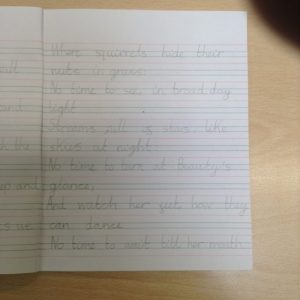 all
and
the
up and
s we
Where squirrels hide their
nuts in grass:
No time to see in broad day
light
Streams full of stars, like
skies at night:
No time to turn at Beauty's
glance,
And watch her feet, how they
can dance
No time to wait till her mouth